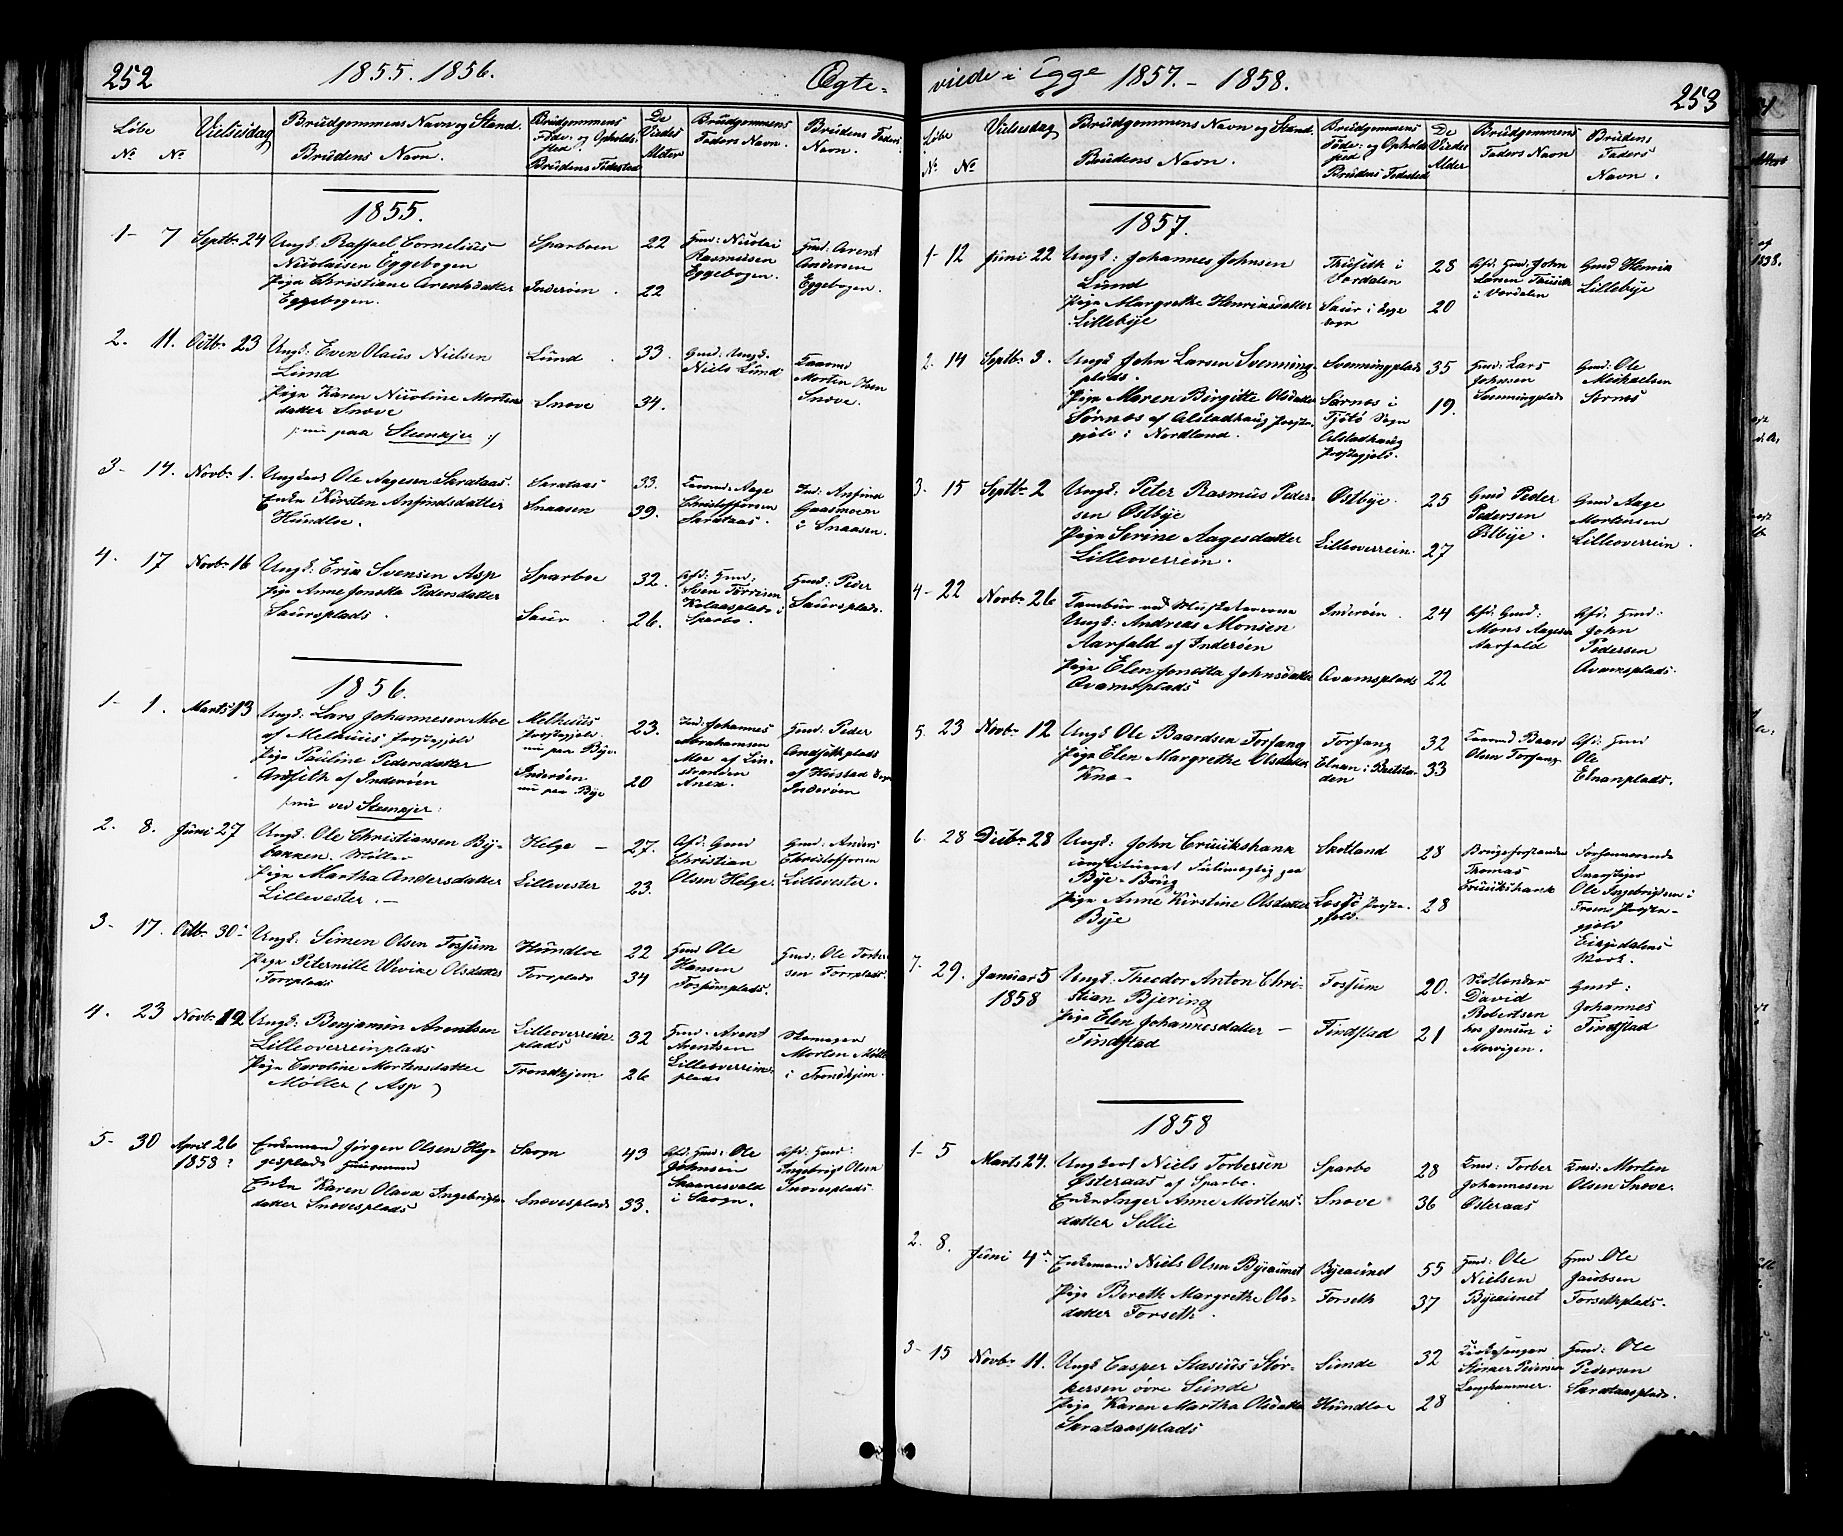 252
1855. 1856.
Ægte-
Løbe
№ №
Vielsesdag
Brudgommens Navn og Stand.
Brudens Navn.
Brudgommens
Føde- og Opholds-
sted.
Brudens Fødested
De
Viedes
Alder
Brudgommens
Faders Navn.
Brudens Faders
Navn.
1855.
1- 7 Septbr 24 Ungk: Raffael Cornelius Sparboen 22 Gmd: Nicolai Gmd: Arent
Nicolaisen Eggebogen Rasmusen Andersen
Pige Christiane Arentsdatter Inderøen 22 Eggebogen. Eggebogen.
Eggebogen.
2. 11. Octbr 23 Ungk: Even Olaus Nielsen Lund 33. Gmd: Ungk:
Lund Niels Lund Morten Olsen
Pige Karen Nicoline Morten Snove 34. Snove.
datter Snove
/: nu paa Steenkjer :/
3- 14. Novbr 1. Ungkarl Ole Aagesen Skrataas. Skrataas 33. Aage Anfind
Enke Kirsten Anfindsdatter Snaasen 39. Christoffersen Gaasmoen
Hundloe. Skrataas. i Snaasen.
4. 17 Novbr 16 Ungk: Erik Svensen Asp Sparboe 32. Afd: Gmd: Gmd: Peder
Pige Anne Jonetta Pedersdatter Sven Saursplads.
Saursplads. Saur 26. i Sparbo.
1856.
1- 1. Marts 13 Ungk: Lars Johannesen Moe Melhuus 23. Johannes Gmd: Peder
af Melhuus Præstegjeld Præstegjeld Abrahamsen Andfilthplads
Pige Pauline Pedersdatter nu paa Bye. Moe af af Hustad Sogn
Andfilth af Inderøen Inderøen 20 Anex. Inderøen
/: nu ved Steenkjer: nu paa Bye
2. 8. Juni 27 Ungk: Ole Christiansen By- Helge - 27. Afd: Gmd Gmd: Anders
bakken. Møller Christian Christoffersen
Pige Martha Andersdatter Lillevester 23. Olsen Helge. Lillevester.
Lillevester. -
3- 17. Octbr 30 Ungk: Simen Olsen Fossum Hundloe 22 Gmd Ole Gmd: Ole Torber
Pige Peternille Wivike Olsdatter Torrplads 34 Hansen sen Torrplads.
Torrplads Fossumplads.
4. 23 Novbr 12 Ungk: Benjamin Arentsen Lilleoverrein- 32 Gmd: Arent Skomager
Lilleoverreinplads plads Arentsen Morten Møller
Pige Caroline Mortensdatter Trondhjem 26 Lilleoverrein- i Trondhjem.
Møller (Asp) plads
5- 30 April 26 Enkemand Jørgen Olsen Heg- Skogn 43 Afd: Gmd: Ole Afd: Gmd:
1858: gesplads Huusmand Johnsen Ingebrigt Olsen
Enke Karen Olava Ingebrigts- Snovesplads 33. i Skogn. Snovesplads
datter Snovesplads
viede i Egge 1857. - 1858.
253
Løbe
№ №
Vielsesdag
Brudgommens Navn og Stand.
Brudens Navn.
Brudgommens
Føde- og Opholds
sted
Brudens Fødested
De
Viedes
Alder
Brudgommens
Faders Navn
Brudens
Faders
Navn.
1857.
1- 12 Juni 22 Ungk: Johannes Johnsen i 28 Afd: Gmd: John Gmd Henrik
Lund Værdalen Larsen Lillebye
Pige Margrethe Henriksdatter Saur i Egge 20 i Værdalen
Lillebye Sogn
2. 14 Septbr 3. Ungk John Larsen Svenning- Svenningplads 35 Gmd: Lars Gmd: Ole
plads. Johnsen Michaelsen
Pige Maren Birgitte Olsdatter Sørnes i 19. Svenningplads Sørnes
Sørnes af Alstadhaug Præste- Tjøtø Sogn
gjeld i Nordland. Alstadhaug
Præstegjeld.
3. 15 Septbr 2 Ungk: Peter Rasmus Peder- Østbye. 25 Gmd Peder Gmd Aage
sen Østbye Pedersen Mortensen
Pige Serine Aagesdatter Lilleoverrein 27 Østbye. Lilleoverrein.
Lilleoverrein.
4- 22 Novbr 26 Tambur ved Musketererne Inderøen. 24 Afd: Gmd: Afd: Gmd:
Ungk: Andreas Monsen Mons Aagesen John
Aarfald af Inderøen Aarfald Pedersen
Pige Elen Jonetta Johnsdatter Qvamsplads 22 Qvamsplads.
Qvamsplads
5. 23 Novbr 12 Ungk Ole Baardsen Forfang Forfang 32 Baard Afd: Gmd
Pige Elen Margrethe Olsdatter Elnan i Beitsta- 33 Olsen Forfang Ole
Kne - den Elnanplads.
6. 28 Decbr 28 Ungk: John Cruickshank Skotland 28 Brugsforstander Forhenværende
constitueret Fuldmægtig paa Thomas
Bye-Brug Cruickshank Ole Ingebrigtsen i
Pige Anne Kirstine Olsdatter Præste- 28
Bye gjeld. gjeld
Værk.
7. 29. Januar 5 Ungk: Theodor Anton Chri- Fossum 20. Skotlænder Gmd:
1858 stian Bjering David Johannes
Pige Elen Johannesdatter - Tindstad 21 Robertsen Tindstad
Findstad hos Jensen i
Morvigen.
1858
1- 5 Marts 24. Ungkarl Niels Torbersen Sparbo 28 Gmd: Torber Gmd: Morten
Østeraas af Sparbo. Johannesen Olsen Snove.
Enke Inger Anne Mortens- Snove 36 Østeraas
datter Sellie
2. 8. Juni 4de Enkemand Niels Olsen Byeaunet Byeaunet 55 Gmd: Ole Gmd Ole
Pige Bereth Margrethe Ols- Forseth 37 Nielsen Jacobsen
datter Forseth. Byeaunet Forsethplads.
3- 15 Novbr 11. Ungk Casper Stasius Stør- Sunde 32 Kirkesanger Gmd: Ole
kersen øvre Sunde Størker Pedersen
Pige Karen Martha Olsdatter Hundloe 28 Langhammer. Skrataasplads.
Skrataasplads